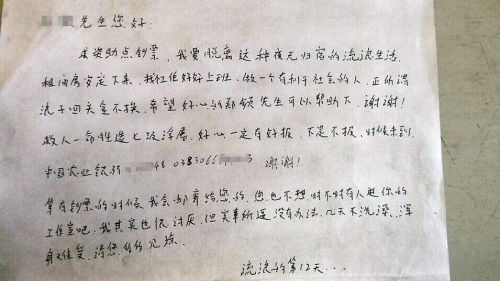 先生您好:
求资助点钞票,我要脱离这种夜无归宿的流浪生活,
租间房安定下来,找工作好好上班,做一个有利于社会的人,正所谓
浪子回头金不换,希望好心的 先生可以帮助下,谢谢!
救人一命胜造七级浮屠,好心一定有好报,不是不报,时候未到
中国农业银行 48 0383066 谢谢!
等有钞票的时候,我会 寄给您的,您也不想时不时有人进你的
工作室吧,我其实也很讨厌,但实事所逼没有办法,几天不洗澡,浑
身 ,请您
流浪的第12天...